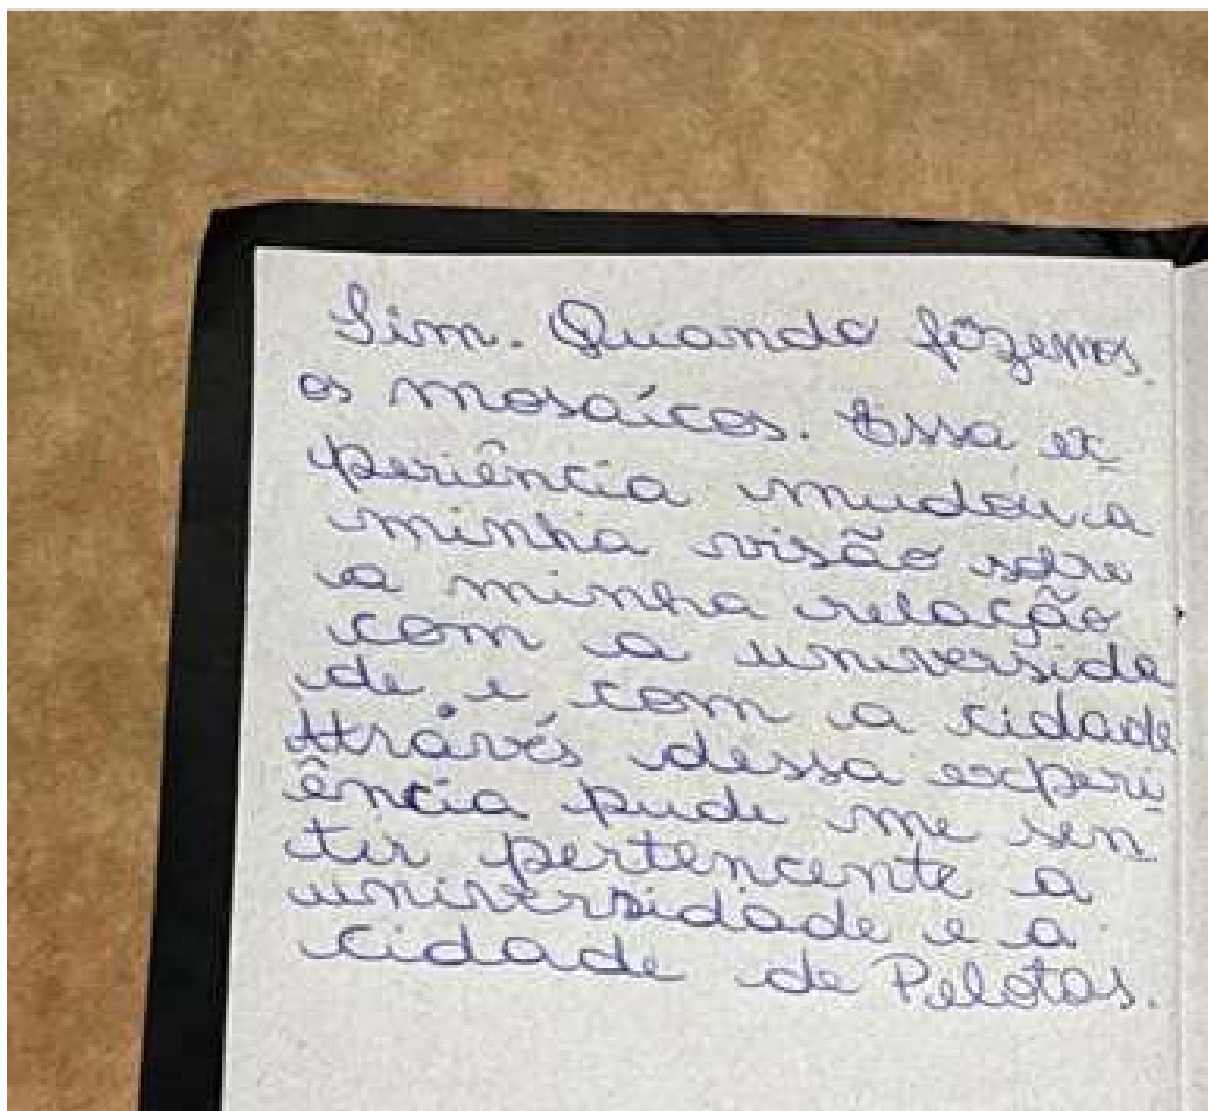 Sim. Quando fozemos
os mosaícos. Essa ex
periência mudou a
minha visão sobre
a minha relação
com a universida
de e com a cidade
Através dessa experi
ência pude me sen
tir pertencente a
universidade e a
cidade de Pelotas.